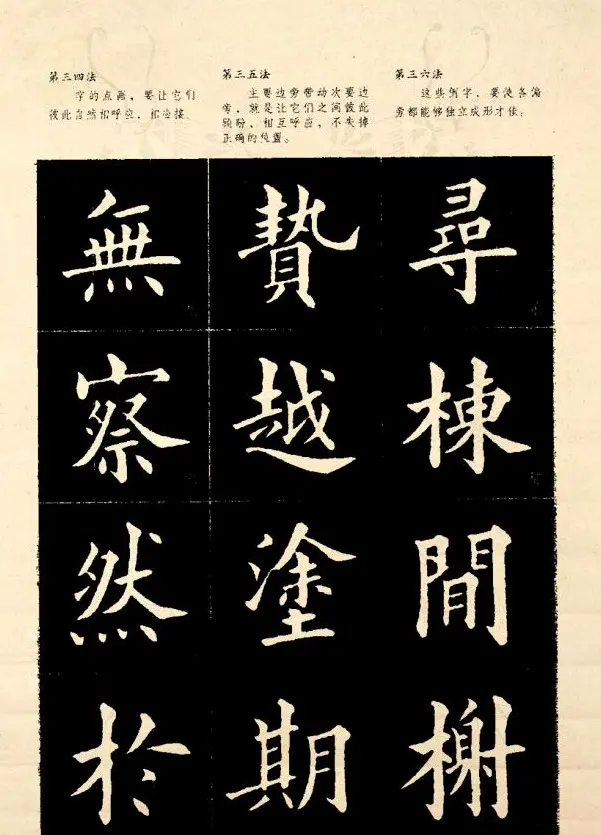 第三四法
字的点画，要让它们
彼此自然相呼应，相接
第三五法
主要边旁带动次要边
旁，就是让它们之间彼此
顾盼、相互呼应，不失掉
正确的位置。
第三六法
这些例字，要使各偏
旁都能够独立成形才佳。
無察然於
贄越塗期
尋棟閒榭